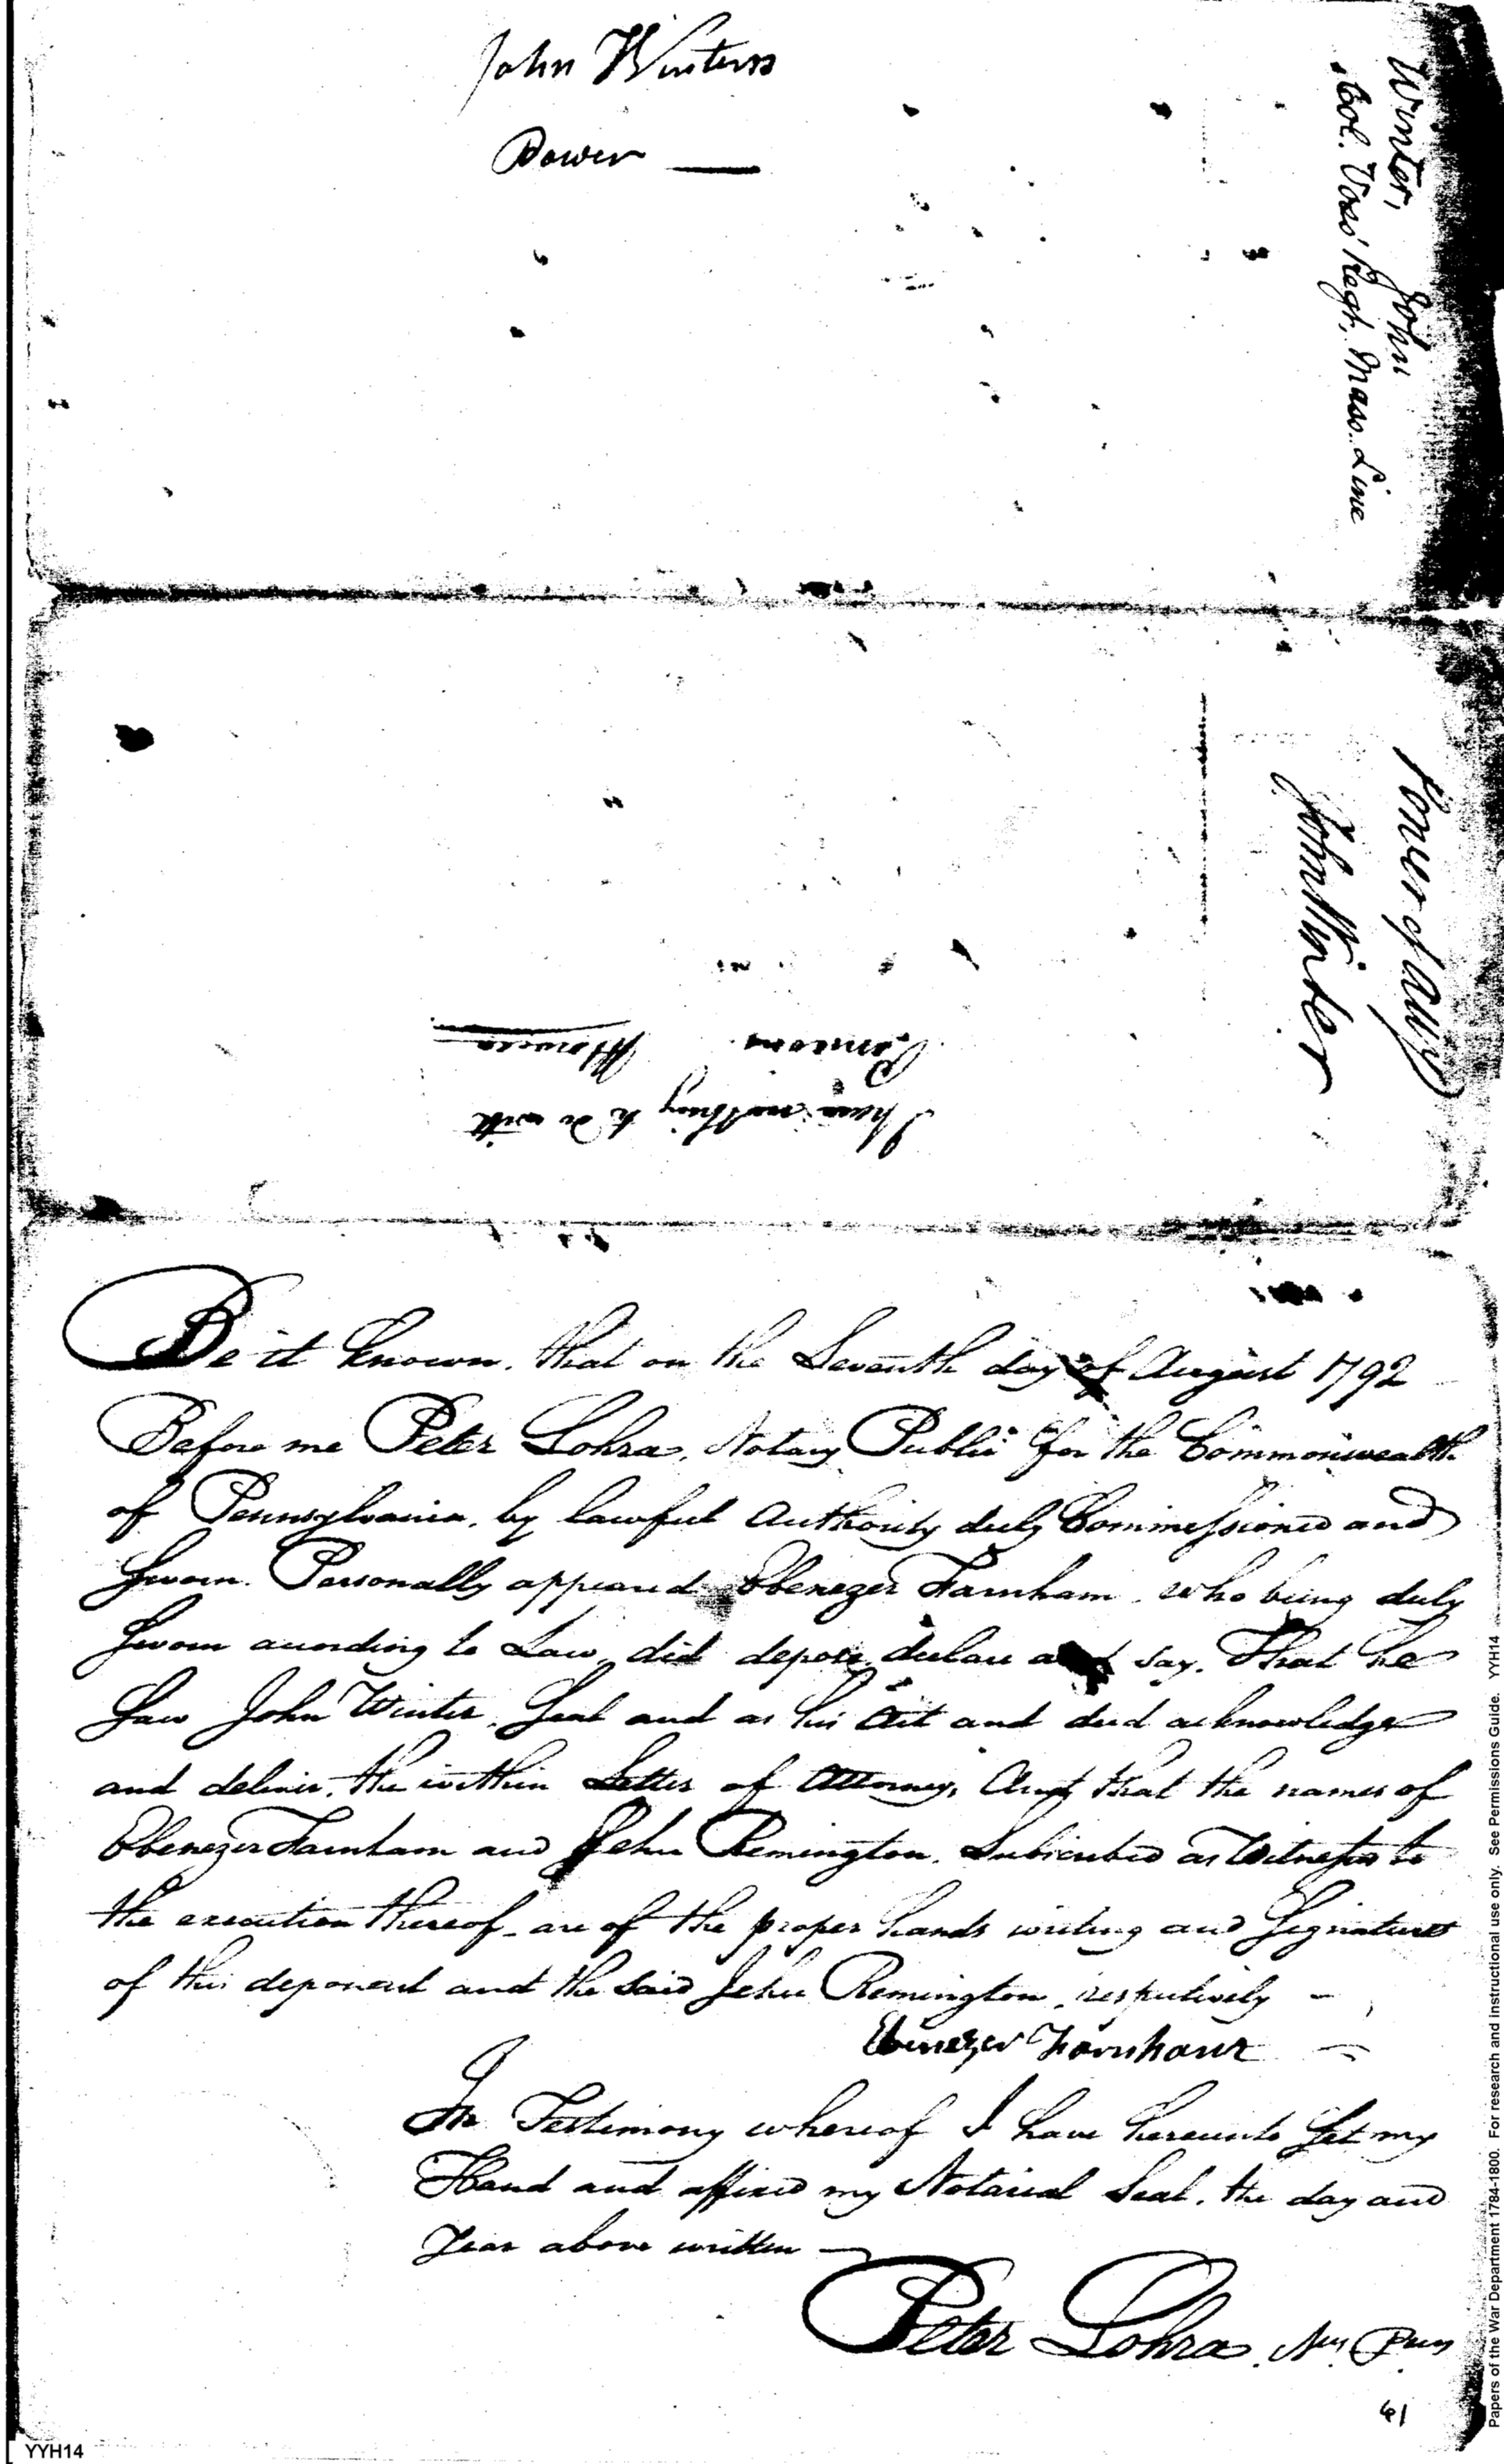 John Winters
Power
Winter, John
Col. Vose' Regt. Mass. Line
Power of Atty
John Winter
I have nothing to do with
Pensions.
Be it known, that on the Seventh day of August 1792
Before me Peter Lohra, Notary Public for the Commonwealth
of Pennsylvania, by lawful Authority duly Commissioned and
Sworn. Personally appeared Ebenezer Farnham, who being duly
Sworn according to Law, did depose, declare and say. That he
Saw John Winter, Seal and as his Act and deed acknowledge
and deliver, the within Letter of Attorney, And that the names of
Ebenezer Farnham and Jehu Remington, Subscribed as Witnesses to
the execution thereof - are of the proper hands writing and Signatures
of this deponent and the said Jehu Remington, respectively -
Ebenezer Farnham
In Testimony whereof I have hereunto Set my
Hand and affixed my Notarial Seal, the day and
Year above written
Peter Lohra,
41
YYH14
Papers of the War Department 1784-1800. For research and instructional use only. See Permissions Guide. YYH14